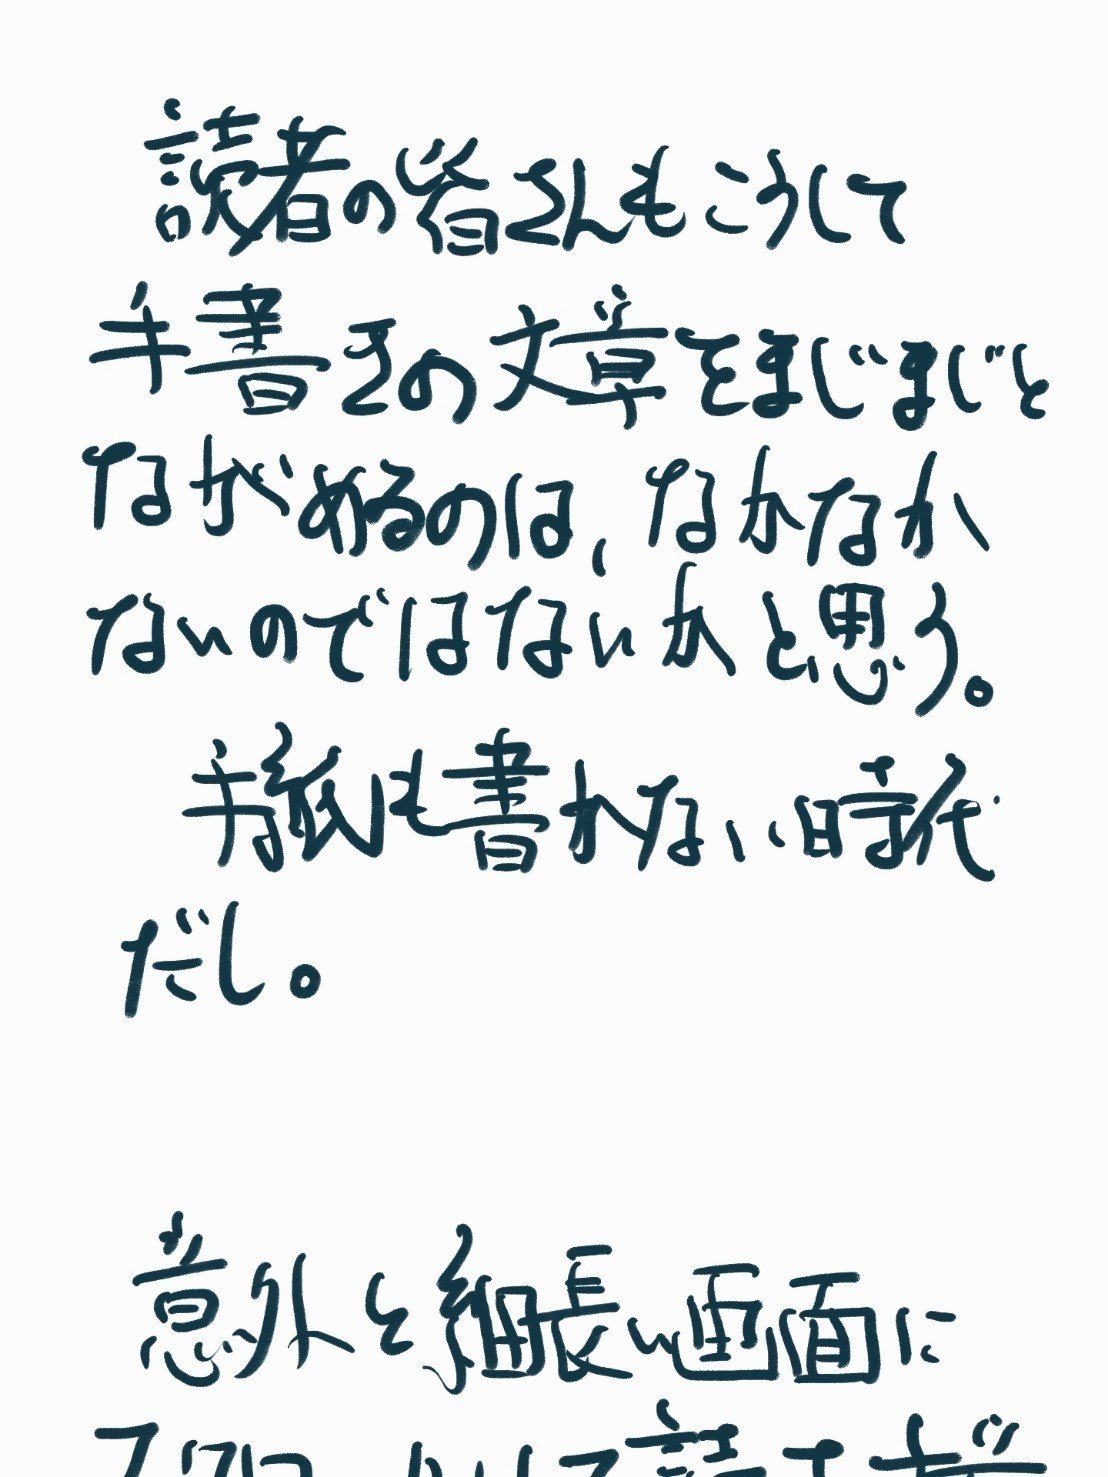 読者の皆さんもこうして
手書きの文章をまじまじと
ながめるのは、なかなか
ないのではないかと思う。
手紙も書かない時代
だし。
意外と細長い画面に